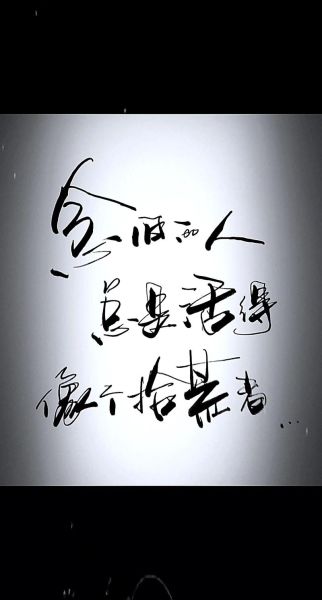 念旧的人
总是活得
像个拾荒者...